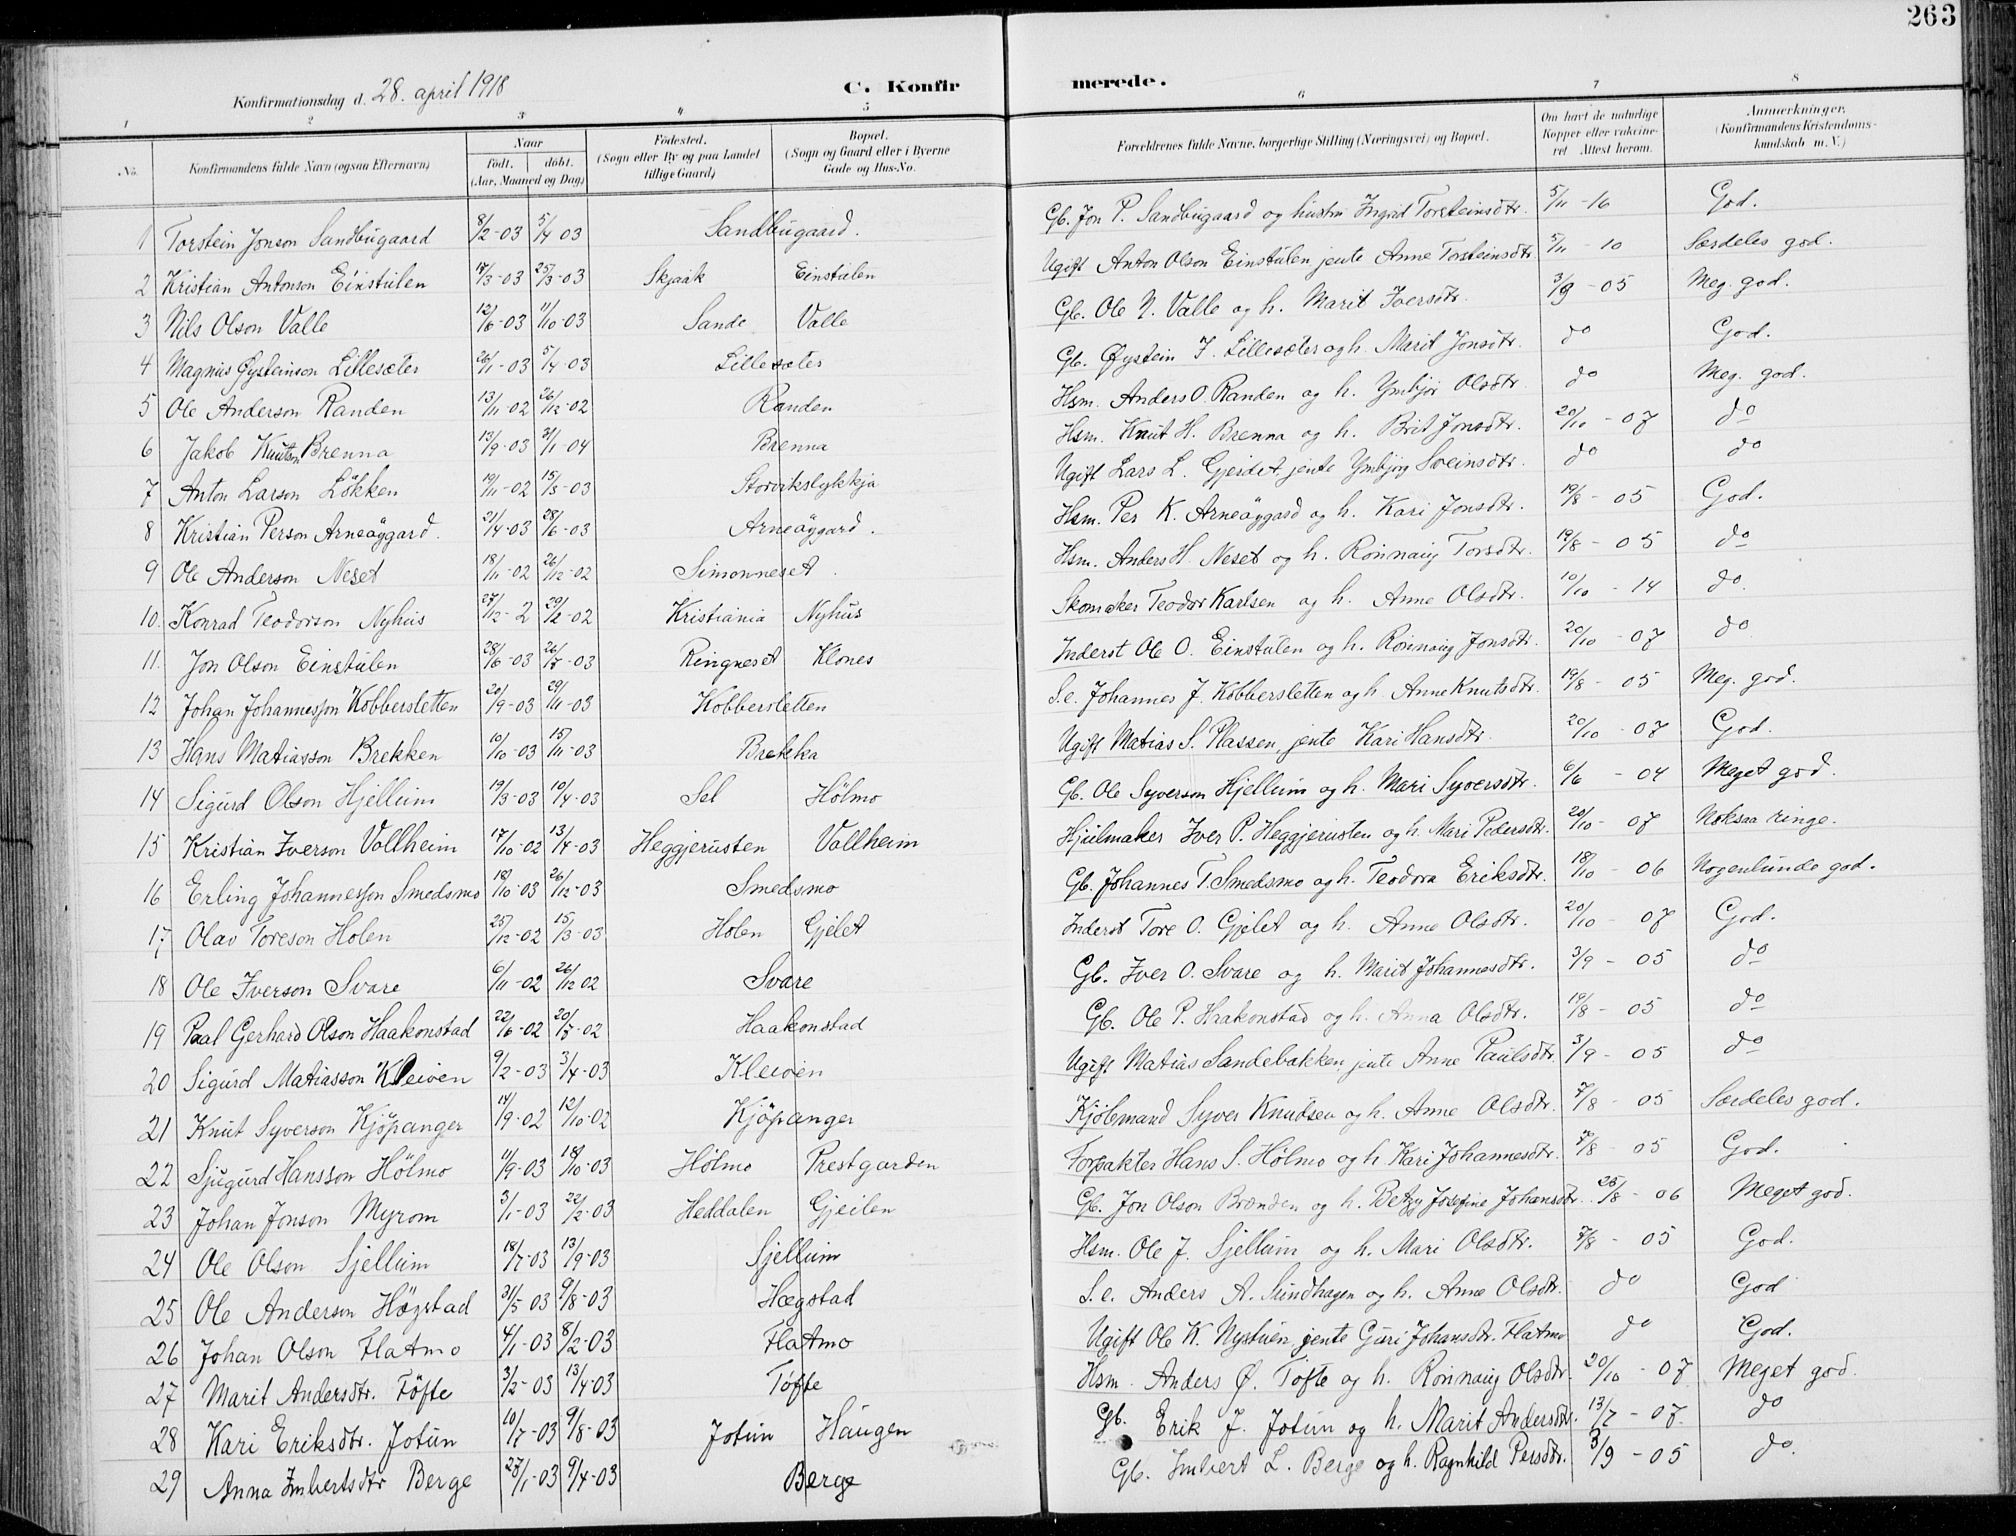 263
Konfirmationsdag d. 28. april 1918
C. Konfirmerede.
1 2 3 4 5 6 7 8
No. Konfirmandens fulde Navn (ogsaa Efternavn) Naar født. døbt. (Aar, Maaned og Dag) Fødested. (Sogn eller By og paa Landet tillige Gaard) Bopæl. (Sogn og Gaard eller i Byerne Gade og Hus-No. Forældrenes fulde Navne, borgerlige Stilling (Næringsvei) og Bopæl. Om havt de naturlige Kopper eller vaccineret Attest herom. Anmærkninger. (Konfirmandens Kristendomskundskab m. V.)
1 Torstein Jonson Sandbugaard 8/2-03 5/4 03 Sandbugaard. Gb. Jon P. Sandbugaard og hustru Ingrid Torsteinsdtr. 5/11-16 God.
2 Kristian Antonson Einstulen 17/3-03 25/3-03 Skjaak Einstulen Ugift Anton Olson Einstulen, jente Anne Torsteinsdtr. 5/11-10 Særdeles god.
3 Nils Olson Valle 12/6-03 11/10-03 Sande Valle Gb. Ole N. Valle og h. Marit Iversdtr. 3/9-05 Meg. god.
4 Magnus Øysteinson Lillesæter 26/1-03 5/4-03 Lillesæter Gb. Øystein J. Lillesæter og h. Marit Jonsdtr. do God.
5 Ole Anderson Randen 13/11-02 26/12-02 Randen Hsm. Anders O. Randen og h. Ymbjør Olsdtr. do Meg. god.
6 Jakob Knutson Brenna 13/9-03 31/1-04 Brenna Hsm. Knut H. Brenna og h. Brit Jonsdtr. 20/10-07 do
7 Anton Larson Løkken 19/11-02 15/3-03 Storvikslykkja Ugift Lars L. Gjeidet, jente Ymbjørg Sveinsdtr. do do
8 Kristian Person Arneøygard. 21/4-03 28/6-03 Arneøygard. Hsm. Per K. Arneøygard og h. Kari Jonsdtr. 19/8-05 God.
9 Ole Anderson Neset 18/11-02 26/12-02 Simonneset. Hsm. Anders H. Neset og h. Rønnaug Torsdtr. 19/8-05 do
10. Konrad Teodorson Nyhus 27/12-2 29/12-02 Kristiania Nyhus Skomaker Teodor Karlsen og h. Anne Olsdtr. 10/10-14 do.
11. Jon Olson Einstulen 28/6-03 26/7-03 Ringneset Klones Inderst Ole O. Einstulen og h. Rønnaug Jonsdtr. 20/10-07 do
12 Johan Johannesson Kobbersletten 20/9-03 29/11-03 Kobbersletten S.e. Johannes J. Kobbersletten og h. Anne Knutsdtr. 19/8-05 Meg. god.
13 Hans Matiasson Brekken 10/10-03 15/11-03 Brekka Ugift Matias S. Plassen, jente Kari Hansdtr. 20/10-07 God.
14 Sigurd Olson Hjellum 19/3-03 10/4-03 Sel Hølmo Gb. Ole Syverson Hjellum og h. Mari Syversdtr. 6/6-04 Meget god.
15 Kristian Iverson Vollheim 17/10-02 13/4-03 Heggjerusten Vollheim Hjulmaker Iver P. Heggjerusten og h. Mari Pedersdtr. 20/10-07 Noksaa ringe.
16 Erling Johannesson Smedsmo 18/10-03 26/12-03 Smedsmo Gb. Johannes T. Smedsmo og h. Teodora Eriksdtr. 18/10-06 Nogenlunde god.
17 Olav Toreson Holen 25/12-02 15/3-03 Holen Gjelet Inderst Tore O. Gjelet og h. Anne Olsdtr. 20/10-07 God.
18 Ole Iverson Svare 6/11-02 26/12 02 Svare Gb. Iver O. Svare og h. Marit Johannesdtr. 3/9-05 do
19 Paal Gerhard Olson Haakonstad 22/6-02 20/7-02 Haakonstad Gb. Ole P. Haakonstad og h. Anna Olsdtr. 19/8-05 do
20 Sigurd Matiasson Kleiven 9/2-03 3/4-03 Kleiven Ugift Matias Sandebakken, jente Anne Paulsdtr. 3/9-05 do
21 Knut Syverson Kjøpanger 14/9-02 12/10-02 Kjøpanger Kjøbmand Syver Knudsen og h. Anne Olsdtr. 7/8-05 Særdeles god.
22 Sjugurd Hansson Hølmo 11/9-03 18/10-03 Hølmo Prestgarden Forpakter Hans S. Hølmo og h Kari Johannesdtr. 7/8-05 God.
23 Johan Jonson Myrom 3/1-03 22/2-03 Heddalen Gjeilen Gb. Jon Olson Brænden og h. Betzy Josefine Johansdtr. 25/8-06 Meget god.
24 Ole Olson Sjellum 18/7-03 13/9-03 Sjellum Hsm. Ole J. Sjellum og h. Mari Olsdtr. 7/8-05 God.
25 Ole Anderson Høgstad 31/5 03 9/8-03 Hægstad S.e. Anders A. Sundhagen og h. Anne Olsdtr. do God
26 Johan Olson Flatmo 4/1-03 8/2-03 Flatmo Ugift Ole K. Nystuen, jente Guri Johansdtr. Flatmo do God.
27 Marit Andersdtr. Tøfte 3/2-03 13/4-03 Tøfte Hsm. Anders Ø. Tøfte og h. Rønnaug Olsdtr. 20/10-07 Meget god.
28 Kari Eriksdtr. Jotun 10/7-03 9/8-03 Jotun Haugen Gb. Erik J. Jotun og h. Marit Andersdtr. 13/7-07. do
29 Anna Imbertsdtr Berge 27/1-03 9/4-03 Berge Gb. Imbert L. Berge og h. Ragnhild Persdtr. 3/9-05 do.